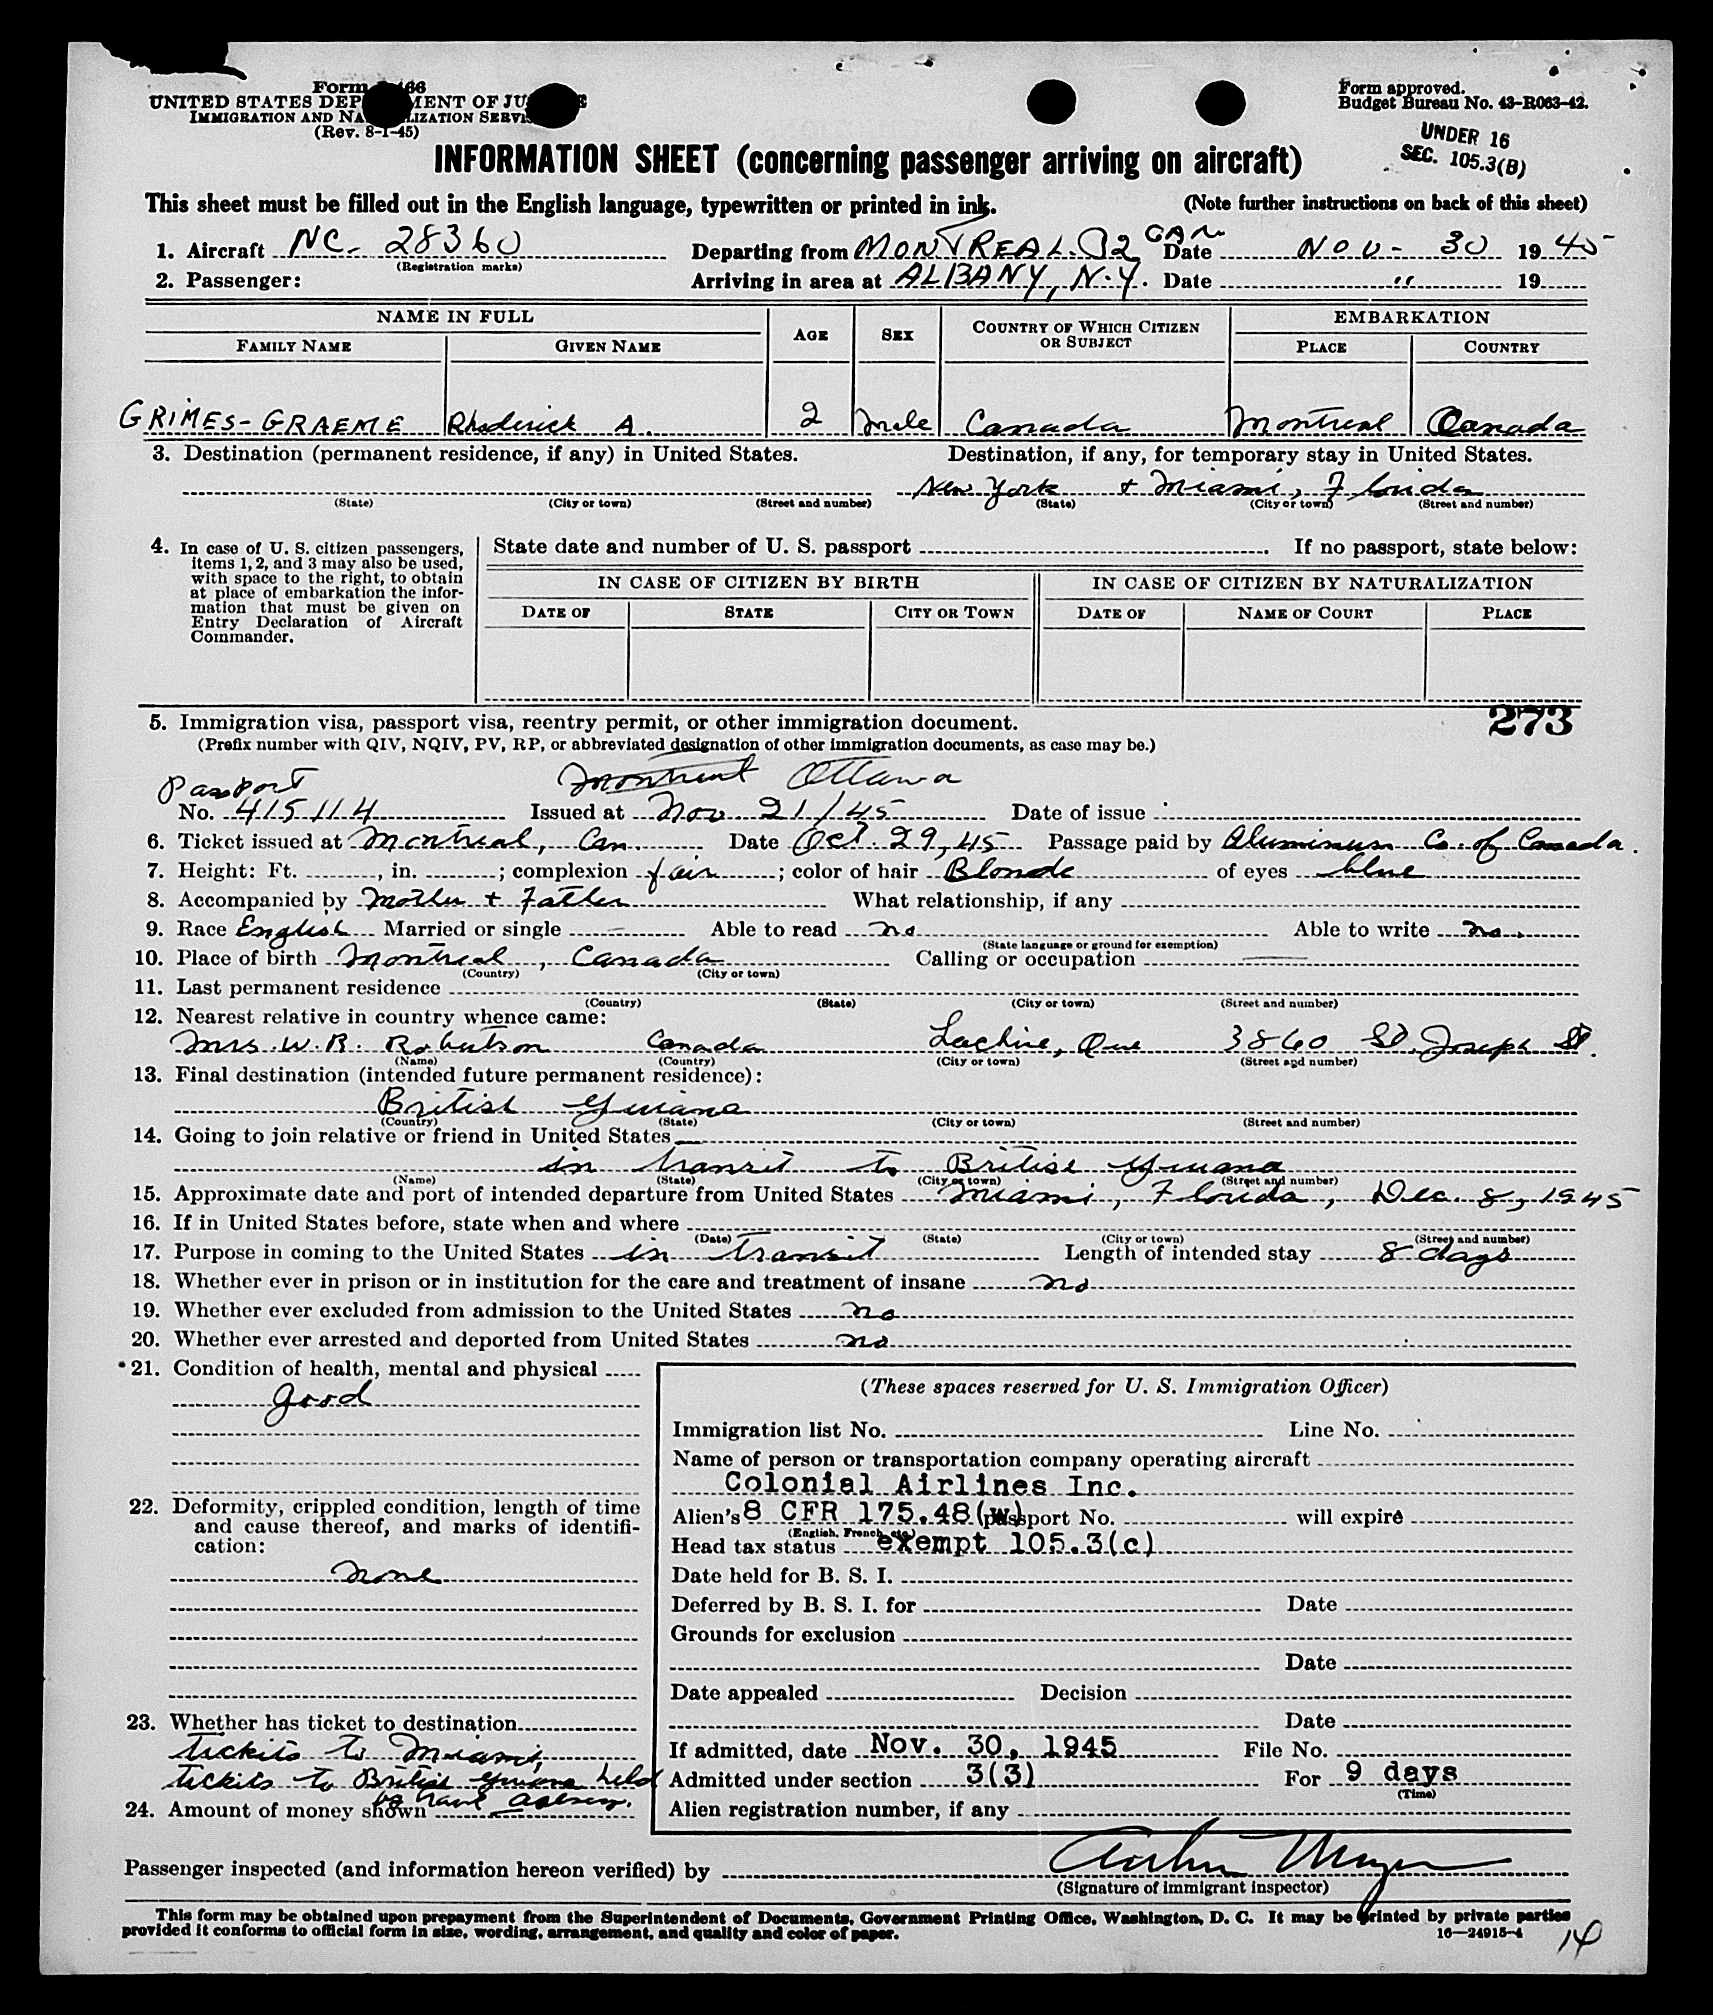 Form 466
UNITED STATES DEPARTMENT OF JUSTICE
IMMIGRATION AND NATURALIZATION SERVICE
(Rev. 8-1-45)
Form approved.
Budget Bureau No. 43-R063-42.
UNDER 16
SEC. 105.3(B)
INFORMATION SHEET (concerning passenger arriving on aircraft)
This sheet must be filled out in the English language, typewritten or printed in ink. (Note further instructions on back of this sheet)
1. Aircraft NC- 28360 Departing from MONTREAL. CAN Date NOV- 30 1945
(Registration marks)
2. Passenger: Arriving in area at ALBANY, N.Y. Date " 19
NAME IN FULL AGE SEX COUNTRY OF WHICH CITIZEN OR SUBJECT EMBARKATION
FAMILY NAME GIVEN NAME PLACE COUNTRY
GRIMES-GRAEME Rhoderick A. 2 Male Canada Montreal Canada
3. Destination (permanent residence, if any) in United States. Destination, if any, for temporary stay in United States.
New York + Miami, Florida
(State) (City or town) (Street and number) (State) (City or town) (Street and number)
4. In case of U. S. citizen passengers, items 1, 2, and 3 may also be used, with space to the right, to obtain at place of embarkation the information that must be given on Entry Declaration of Aircraft Commander.
State date and number of U. S. passport . If no passport, state below:
IN CASE OF CITIZEN BY BIRTH IN CASE OF CITIZEN BY NATURALIZATION
DATE OF STATE CITY OR TOWN DATE OF NAME OF COURT PLACE
273
5. Immigration visa, passport visa, reentry permit, or other immigration document.
(Prefix number with QIV, NQIV, PV, RP, or abbreviated designation of other immigration documents, as case may be.)
Passport Montreal Ottawa
No. 415114 Issued at Nov 21/45 Date of issue
6. Ticket issued at Montreal, Can. Date Oct. 29, 45 Passage paid by Aluminum Co. of Canada.
7. Height: Ft. , in. ; complexion fair ; color of hair Blonde of eyes blue
8. Accompanied by Mother + Father What relationship, if any
9. Race English Married or single - Able to read no Able to write no.
(State language or ground for exemption)
10. Place of birth Montreal, Canada Calling or occupation —
(Country) (City or town)
11. Last permanent residence
(Country) (State) (City or town) (Street and number)
12. Nearest relative in country whence came:
Mrs. W. R. Robertson Canada Lachine, Que 3860 St. Joseph St.
(Name) (Country) (City or town) (Street and number)
13. Final destination (intended future permanent residence):
British Guiana
(Country) (State) (City or town) (Street and number)
14. Going to join relative or friend in United States
in transit to British Guiana
(Name) (State) (City or town) (Street and number)
15. Approximate date and port of intended departure from United States Miami, Florida, Dec. 8, 1945
16. If in United States before, state when and where
(Date) (State) (City or town) (Street and number)
17. Purpose in coming to the United States in transit Length of intended stay 8 days
18. Whether ever in prison or in institution for the care and treatment of insane no
19. Whether ever excluded from admission to the United States no
20. Whether ever arrested and deported from United States no
*21. Condition of health, mental and physical
good
22. Deformity, crippled condition, length of time and cause thereof, and marks of identification:
none
23. Whether has ticket to destination
tickets to Miami,
tickets to British Guiana held
24. Amount of money shown
(These spaces reserved for U. S. Immigration Officer)
Immigration list No. Line No.
Name of person or transportation company operating aircraft
Colonial Airlines Inc.
Alien's 8 CFR 175.48(w) passport No. will expire
(English, French, etc.)
Head tax status exempt 105.3(c)
Date held for B. S. I.
Deferred by B. S. I. for Date
Grounds for exclusion
Date
Date appealed Decision
Date
If admitted, date Nov. 30, 1945 File No.
Admitted under section 3(3) For 9 days
(Time)
Alien registration number, if any
Passenger inspected (and information hereon verified) by
(Signature of immigrant inspector)
This form may be obtained upon prepayment from the Superintendent of Documents, Government Printing Office, Washington, D. C. It may be printed by private parties
provided it conforms to official form in size, wording, arrangement, and quality and color of paper.
16—24915-4
14